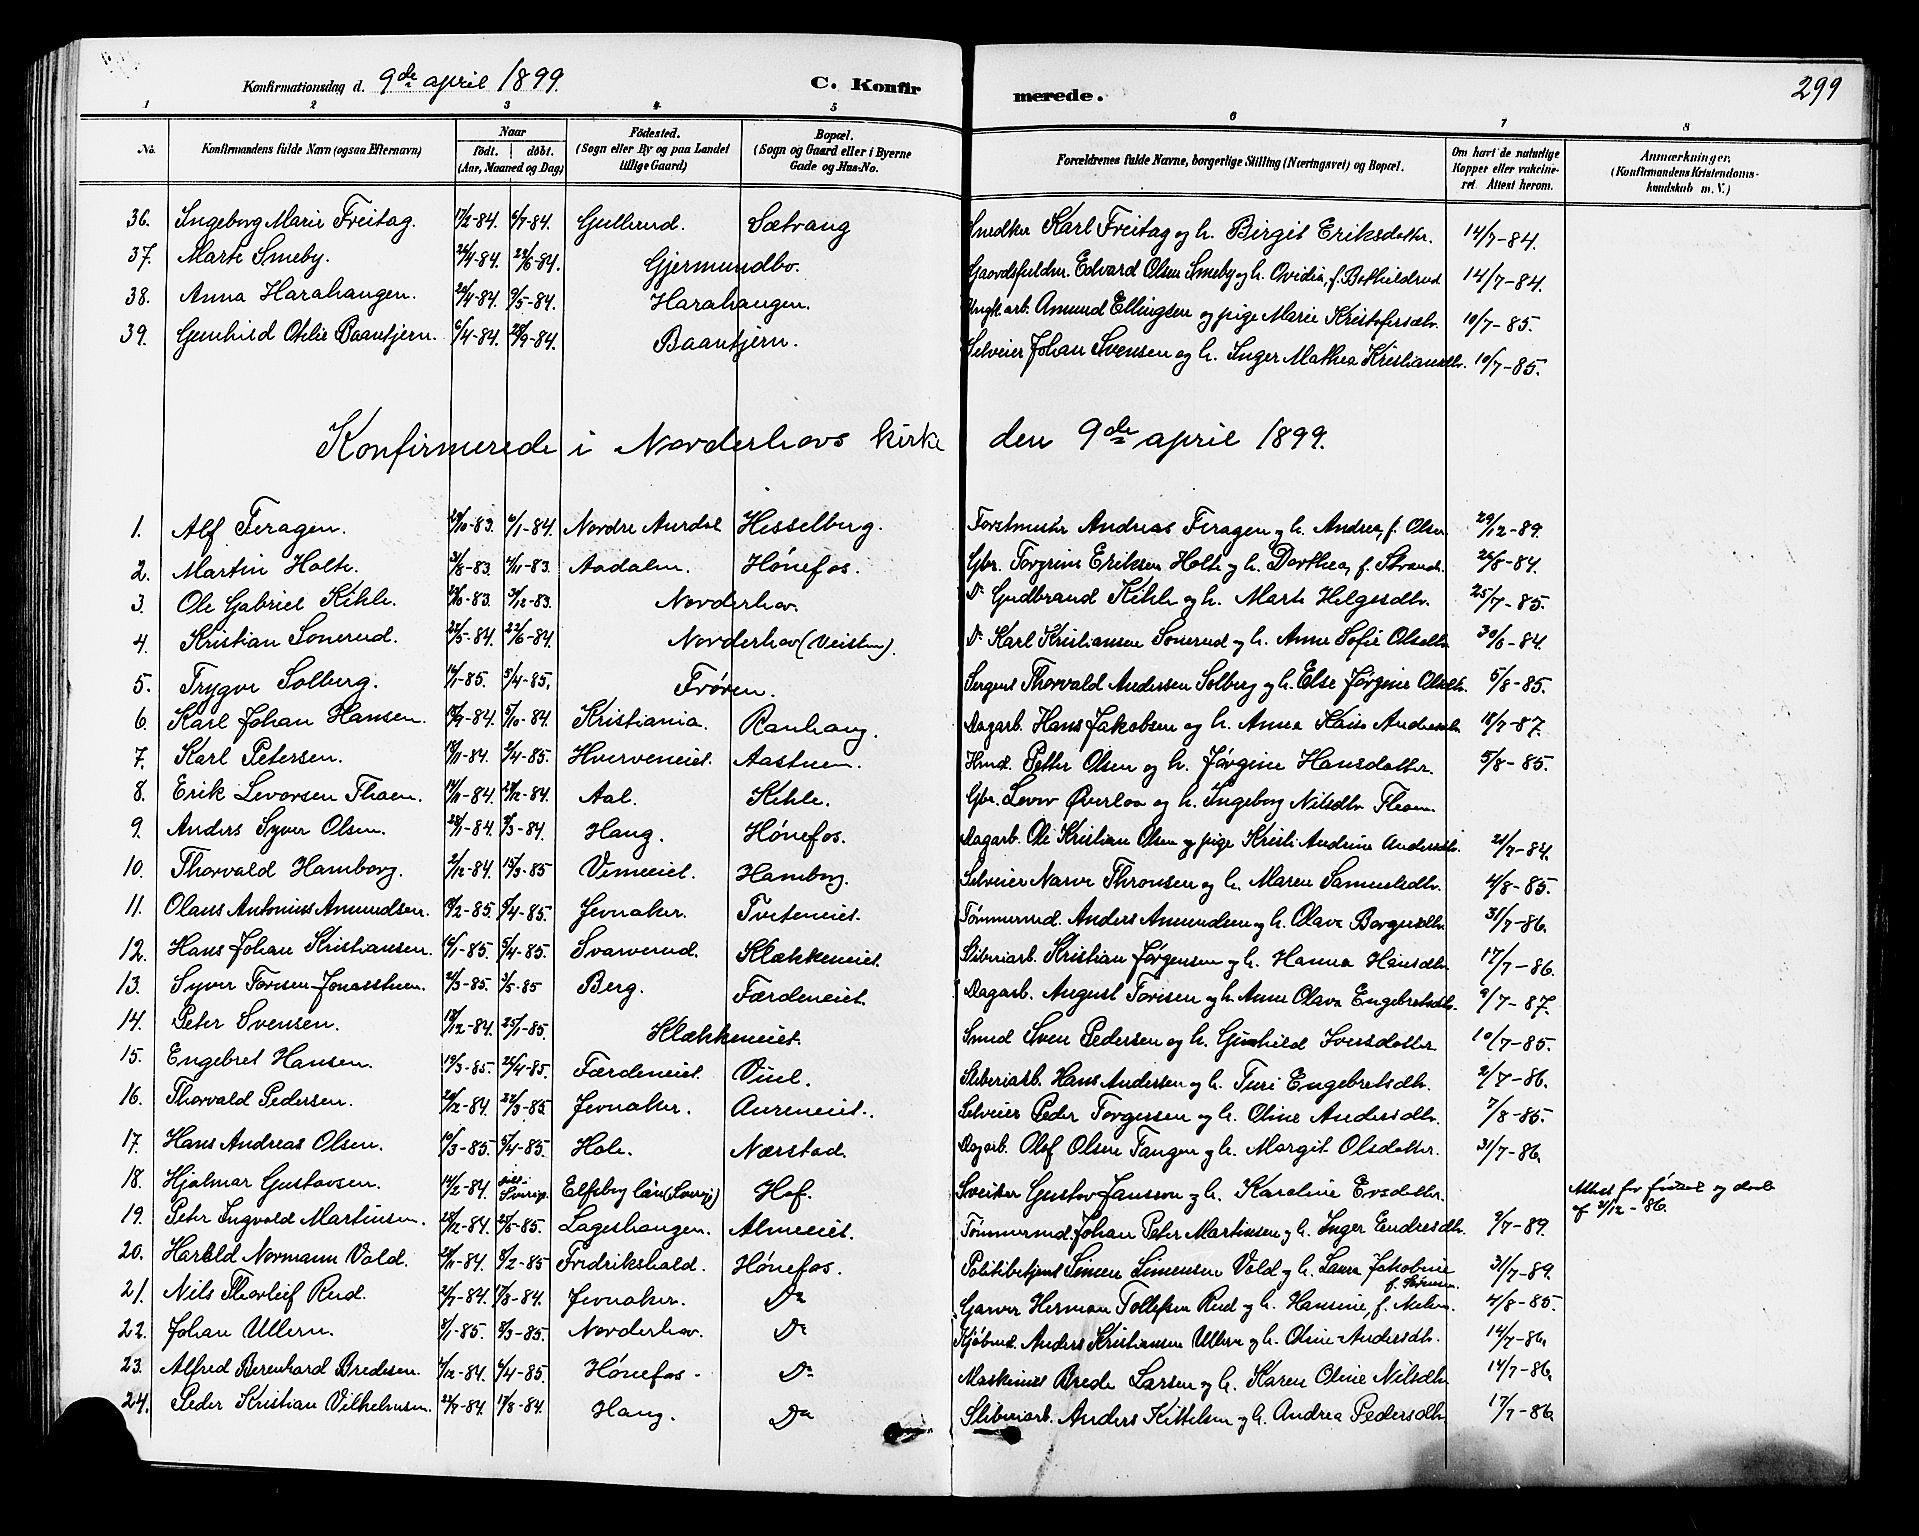 Konfirmationsdag d. 9de april 1899.
C. Konfirmerede.
299
1 2 3 4 5 6 7 8
No. Konfirmandens fulde Navn (ogsaa Efternavn) Naar födt. döbt. (Aar, Maaned og Dag) Födested. (Sogn eller By og paa Landet tillige Gaard) Bopæl. (Sogn og Gaard eller i Byerne Gade og Hus-No. Forældrenes fulde Navne, borgerlige Stilling (Næringsvei) og Bopæl. Om havt de naturlige Kopper eller vakcineret. Attest herom. Anmærkninger. (Konfirmandens Kristendomskundskab m. V.)
36. Ingeborg Marie Freitag. 17/2-84. 6/7-84. Gullerud. Sætrang Snedker Karl Freitag og h. Birgit Eriksdatter. 14/7-84.
37. Marte Smeby. 24/4-84. 22/6-84. Gjermundbo. Edvard Olsen Smeby og h. Ovidia, f. Bothildrud 14/7-84.
38. Anna Harahaugen. 20/4-84. 9/5-84. Harahaugen. Ungk. arb. Amund Ellingsen og pige Marie Kristofersdtr. 10/7-85.
39. Gunhild Otilie Baantjern. 6/4-84. 28/9-84. Baantjern. Selveier Johan Svensen og h. Inger Mathea Kristiansdtr. 10/7-85.
Konfirmerede i Norderhovs kirke den 9de april 1899.
1. Alf Feragen. 29/10-83. 6/1-84. Nordre Aurdal Hesselberg. Forstmester Andreas Feragen og h. Andrea, f. Olsen 29/12-89.
2. Martin Holte. 31/8-83. 4/11-83. Aadalen. Hønefos. Gbr. Torgrim Eriksen Holte og h. Dorthea, f. Strande. 26/8-84.
3. Ole Gabriel Kihle. 23/10-83. 3/12-83. Norderhov. Do Gudbrand Kihle og h. Marte Helgesdtr. 25/7-85.
4. Kristian Sonerud. 22/5-84. 22/6-84. Norderhov (Veisten). Do Karl Kristiansen Sonerud og h. Anne Sofie Olsdtr. 30/6-84.
5. Trygve Solberg. 14/1-85. 5/4-85. Frøren. Sergent Thorvald Andersen Solberg og h. Else Jørgine Olsdtr. 5/8-85.
6. Karl Johan Hansen. 19/9-84. 5/10-84. Kristiania. Ranhaug. Dagarb. Hans Jakobsen og h. Anna Andreasdtr. 18/7-87.
7. Karl Petersen. 19/11-84. 5/4-85. Hverveneiet. Aastuen. Hmd. Petter Olsen og h. Jørgine Hansdatter. 5/8-85.
8. Erik Levorsen Thoen. 14/11-84. 28/12-84. Aal. Kihle. Gbr. Levor Øverloa og h. Ingeborg Nilsdtr. Thoen.
9. Anders Syver Olsen. 28/1-84. 2/3-84. Haug. Hønefos. Dagarb. Ole Kristian Olsen og pige Kristi Andrine Andersdtr. 21/7-84.
10. Thorvald Hamborg. 2/12-84. 15/3-85 Vimeeiet. Hamborg. Selveier Narve Thronsen og h. Maren Samuelsdtr. 4/8-85.
11. Olaus Antonius Amundsen. 10/2-85. 5/4-85. Jevnaker. Tveteneiet. Tømmermd. Anders Amundsen og h. Olava Borgersdtr. 31/7-86.
12. Hans Johan Kristiansen. 16/1-85. 5/4-85. Svarverud. Klækkeneiet. Sliberiarb. Kristian Jørgensen og h. Hanna Hansdtr. 17/7-86.
13. Syver Torisen-Jonasstuen. 20/3-85. 3/5-85 Berg. Færdeneiet. Dagarb. August Torisen og h. Anne Olava Engebretsdtr. 9/7-87.
14. Peter Svensen. 19/12-84. 25/1-85. Klækkeneiet. Smed Sven Pedersen og h. Gunhild Iversdatter. 10/7-85.
15. Engebret Hansen. 19/3-85. 26/4-85. Færdeneiet. Viul. Sliberiarb. Hans Andersen og h. Turi Engebretsdtr. 2/7-86.
16. Thorvald Pedersen. 28/12-84. 22/3-85. Jevnaker. Aureneiet. Selveier Peder Torgersen og h. Oline Andersdtr. 7/8-85.
17. Hans Andreas Olsen. 10/3-85. 5/4-85. Hole. Nærstad. Dagarb. Olof Olsen Tangen og h. Margit Olsdatter. 31/7-86.
18. Hjalmar Gustavsen. 14/2-84. Sverige Elfsborg län (Sverig) Hof. Sveiser Gustav Jansson og h. Karoline Evsdatter. Attest for fødsel og daab af 2/12-86.
19. Peter Ingvald Martinsen. 28/12-84. 25/5-85. Lageshaugen. Almeeiet. Tømmermd. Johan Peter Martinsen og h. Inger Endresdtr. 3/7-89.
20. Harald Normann Vold. 29/11-84. 8/2-85 Fredrikshald. Hønefos. Politibetjent Simen Simensen Vold og h. Laura Jakobine f. Sørensen. 31/7-89.
21. Nils Thorleif Rud. 21/7-84. 17/8-84. Jevnaker. Do Garver Herman Tollefsen Rud og h. Hansine, f. 4/8-85.
22. Johan Ullern. 8/1-85. 8/3-85. Norderhov. Do Kjøbmd. Anders Kristiansen Ullern og h. Oline Andersdtr. 14/7-86.
23. Alfred Berenhard Bredesen. 4/12-84. 6/4-85. Hønefos. Do Maskinist Brede Larsen og h. Karen Oline Nilsdtr. 14/7-86.
24. Peder Kristian Vilhelmsen. 22/7-84. 17/8-84. Haug. Do Sliberiarb. Anders Kittelsen og h. Andrea Pedersdtr. 17/7-86.